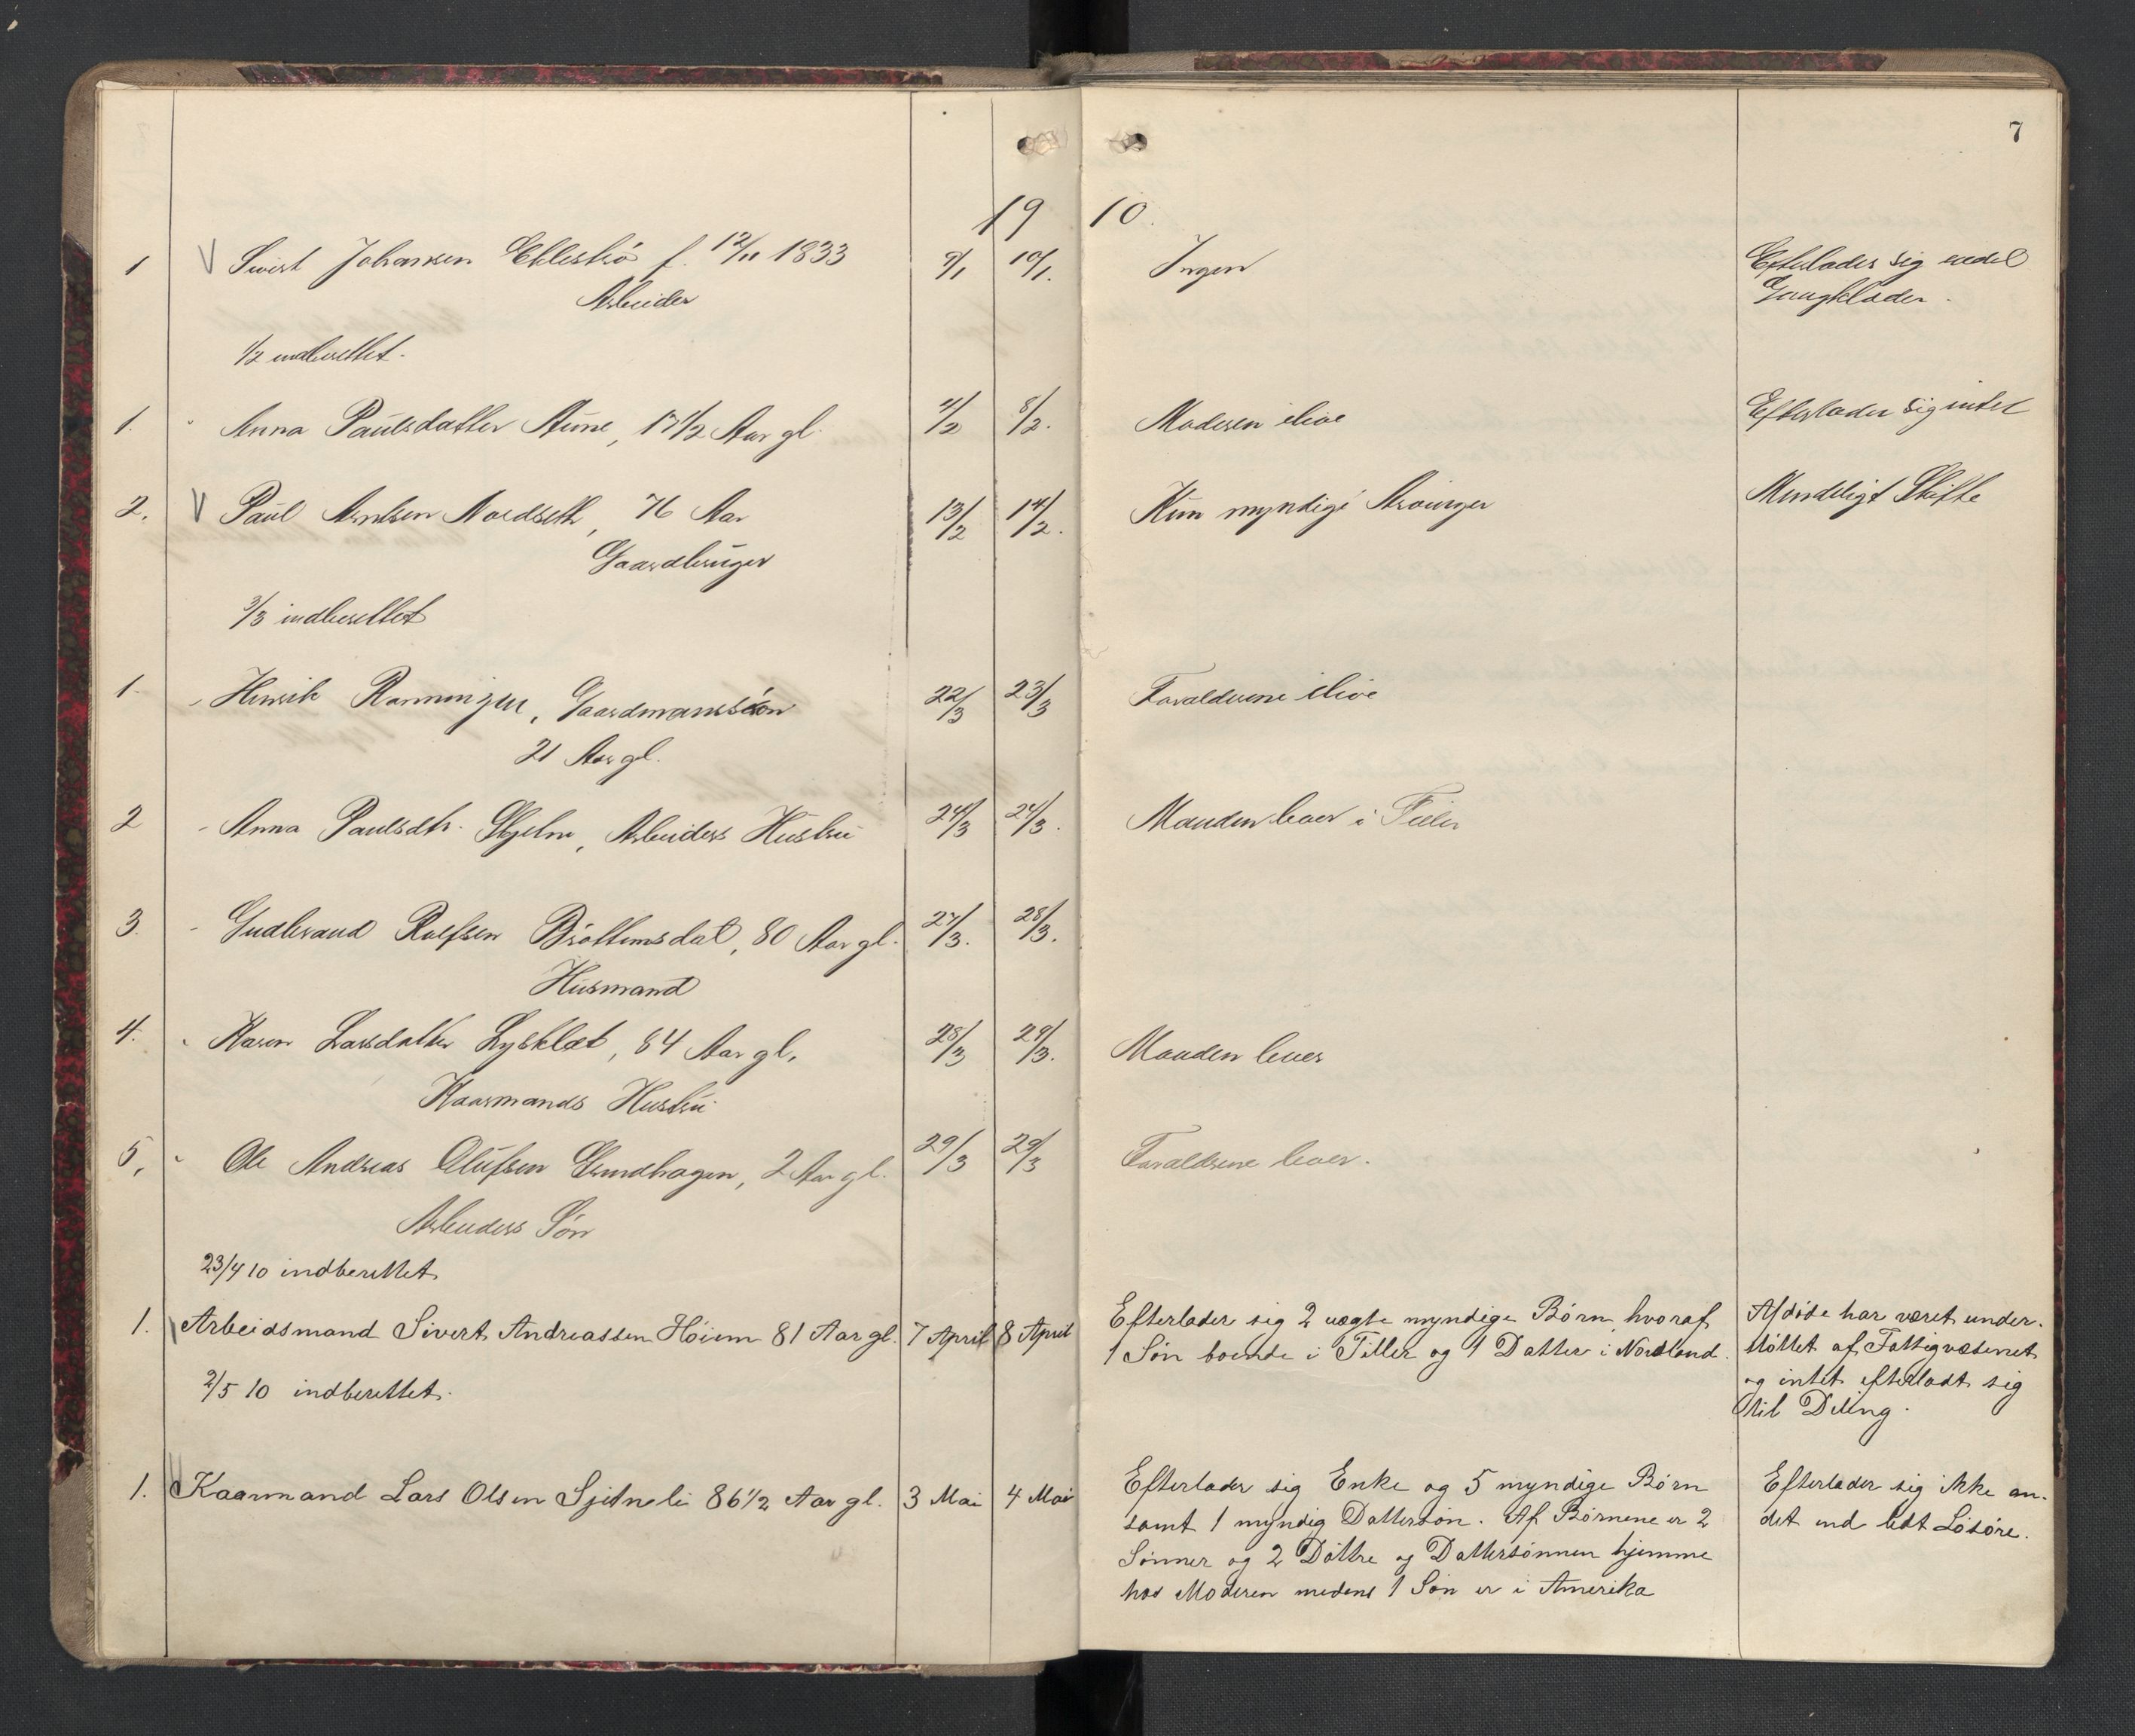 7
19 10.
1 Sivert Johansen Eklestrø f. 12/11 1833 9/1 10/1. Ingen Efterlader sig endel
Arbeider Gangklæder.
1/2 indberettet.
1. Anna Paulsdatter Aune, 17 1/2 Aar gl. 4/2 8/2. Moderen ilive Efterlader sig intet
2. Paul Arntsen Nordseth, 76 Aar 13/2 14/2. Kun myndige Arvinger Mindeligt Skifte
Gaardbruger
3/3 indberettet
1. Henrik Ramningen, Gaardmandssøn 22/3 23/3 Forældrene ilive
21 Aar gl.
2 Anna Paulsdtr. Skjelm, Arbeiders Hustru 24/3 24/3. Manden lever i Tiller
3. Gudbrand Rolfsen Brøttemsdal, 80 Aar gl. 27/3. 28/3.
Husmand
4. Karen Larsdatter Lysklæt, 84 Aar gl. 28/3 29/3. Manden lever
Kaarmands Hustru
5, Ole Andreas Olufsen Grindhagen, 2 Aar gl. 29/3 29/3 Forældrene lever.
Arbeiders Søn
23/4 10 indberettet
1. Arbeidsmand Sivert Andreassen Høiem 81 Aar gl. 7 April 8 April Efterlader sig 2 uægte myndige Børn, hvoraf Afdøde har været under-
1 Søn boende i Tiller og 1 Datter i Nordland. støttet af Fattigvæsenet
2/5 10 indberettet. og intet efterladt sig
til Deling.
1. Kaarmand Lars Olsen Sjetneli 86 1/2 Aar gl. 3 Mai 4 Mai Efterlader sig Enke og 5 myndige Børn Efterlader sig ikke an-
samt 1 myndig Dattersøn. Af Børnene er 2 det end lidt Løsøre.
Sønner og 2 Døttre og Dattersønnen hjemme
hos Moderen medens 1 Søn er i Amerika